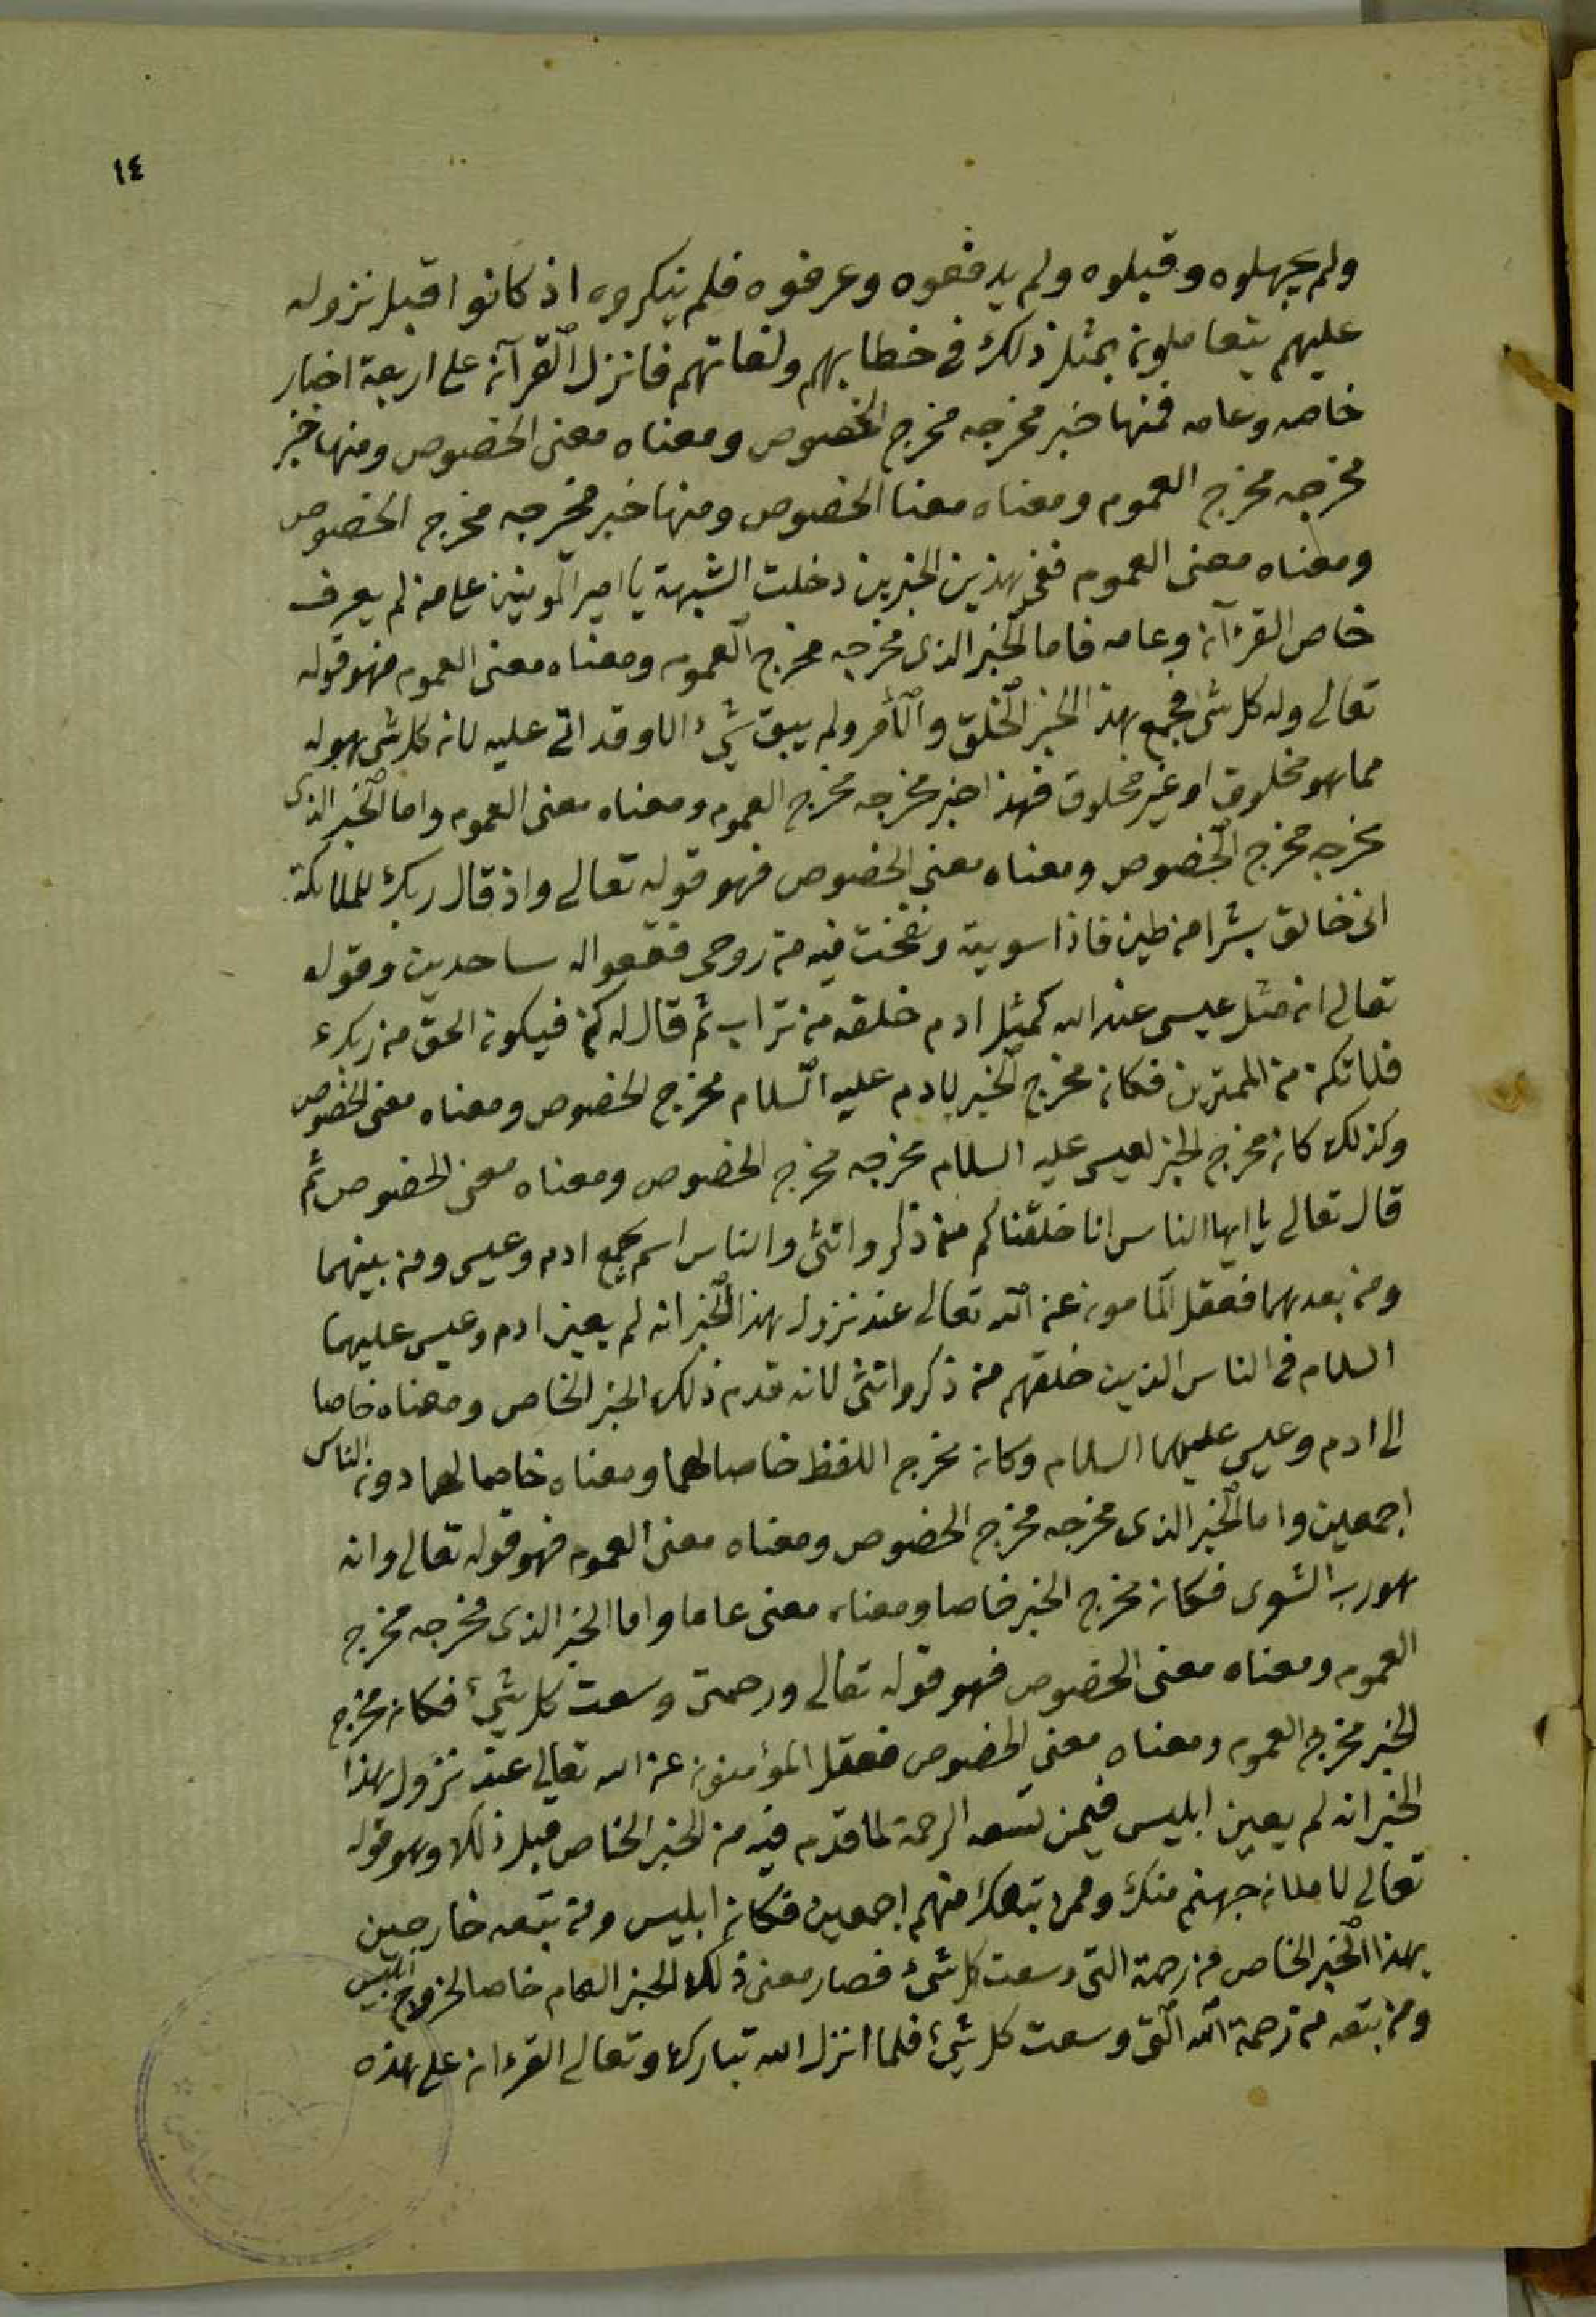 ١٤
ولم يجهلوه وقبلوه ولم يدفعوه وعرفوه فلم ينكروه اذ كانوا قبل نزوله
عليهم يتعاملون بمثل ذلك فى خطابهم ولغاتهم فانزل القرآن على اربعة اخبار
خاصه وعامه فمنها خبر مخرجه مخرج الخصوص ومعناه معنى الخصوص ومنها خبر
مخرجه مخرج العموم ومعناه معنا الخصوص ومنها خبر مخرجه مخرج الخصوص
ومعناه معنى العموم ففى هذين الخبرين دخلت الشبهة يا امير المومنين على من لم يعرف
خاص القرءآن وعامه فاما الخبر الذى مخرجه مخرج العموم ومعناه معنى العموم فهو قوله
تعالى وله كل شئ فجمع هذا الخبر الخلق والأمر ولم يبق شيء الا وقد اتى عليه لانه كل شئ هوله
مما هو مخلوق او غير مخلوق فهذا خبر مخرجه مخرج العموم ومعناه معنى العموم واما الخبر الذى
مخرجه مخرج الخصوص ومعناه معنى الخصوص فهو قوله تعالى واذ قال ربك للملائكة
انى خالق بشرا من طين فاذا سويته ونفخت فيه من روحى فقعوا له ساجدين وقوله
تعالى ان مثل عيسى عند الله كمثل ادم خلقه من تراب ثم قال له كن فيكون الحق من ربك
فلا تكن من الممترين فكان مخرج الخبر لادم عليه السلام مخرج الخصوص ومعناه معنى الخصوص
وكذلك كان مخرج الخبر لعيسى عليه السلام مخرجه مخرج الخصوص ومعناه معنى الخصوص ثم
قال تعالى يا ايها الناس انا خلقناكم من ذكر وانثى والناس اسم يجمع ادم وعيسى ومن بينهما
ومن بعدهما فعقل المامون عن الله تعالى عند نزول هذا الخبر انه لم يعن ادم وعيسى عليهما
السلام فى الناس الذين خلقهم من ذكر وانثى لانه قدم ذلك الخبر الخاص ومعناه خاصا
الى ادم وعيسى عليهما السلام وكان مخرج اللفظ خاصا لهما ومعناه خاصا لهما دون الناس
اجمعين واما الخبر الذى مخرجه مخرج الخصوص ومعناه معنى العموم فهو قوله تعالى وانه
هو رب الشعرى فكان مخرج الخبر خاصا ومعناه معنى عاما واما الخبر الذى مخرجه مخرج
العموم ومعناه معنى الخصوص فهو قوله تعالى ورحمتى وسعت كل شيء فكان مخرج
الخبر مخرج العموم ومعناه معنى الخصوص فعقل المؤمنون عن الله تعالى عند نزول هذا
الخبر انه لم يعن ابليس فيمن تسعه الرحمة لما قدم فيه من الخبر الخاص قبل ذلك وهو قوله
تعالى لاملان جهنم منك وممن تبعك منهم اجمعين فكان ابليس ومن تبعه خارجين
بهذا الخبر الخاص من رحمة التى وسعت كل شىء فصار معنى ذلك الخبر العام خاصا لخروج ابليس
ومن تبعه من رحمة الله التى وسعت كل شيء فلما انزل الله تبارك وتعالى القرءان على هذه